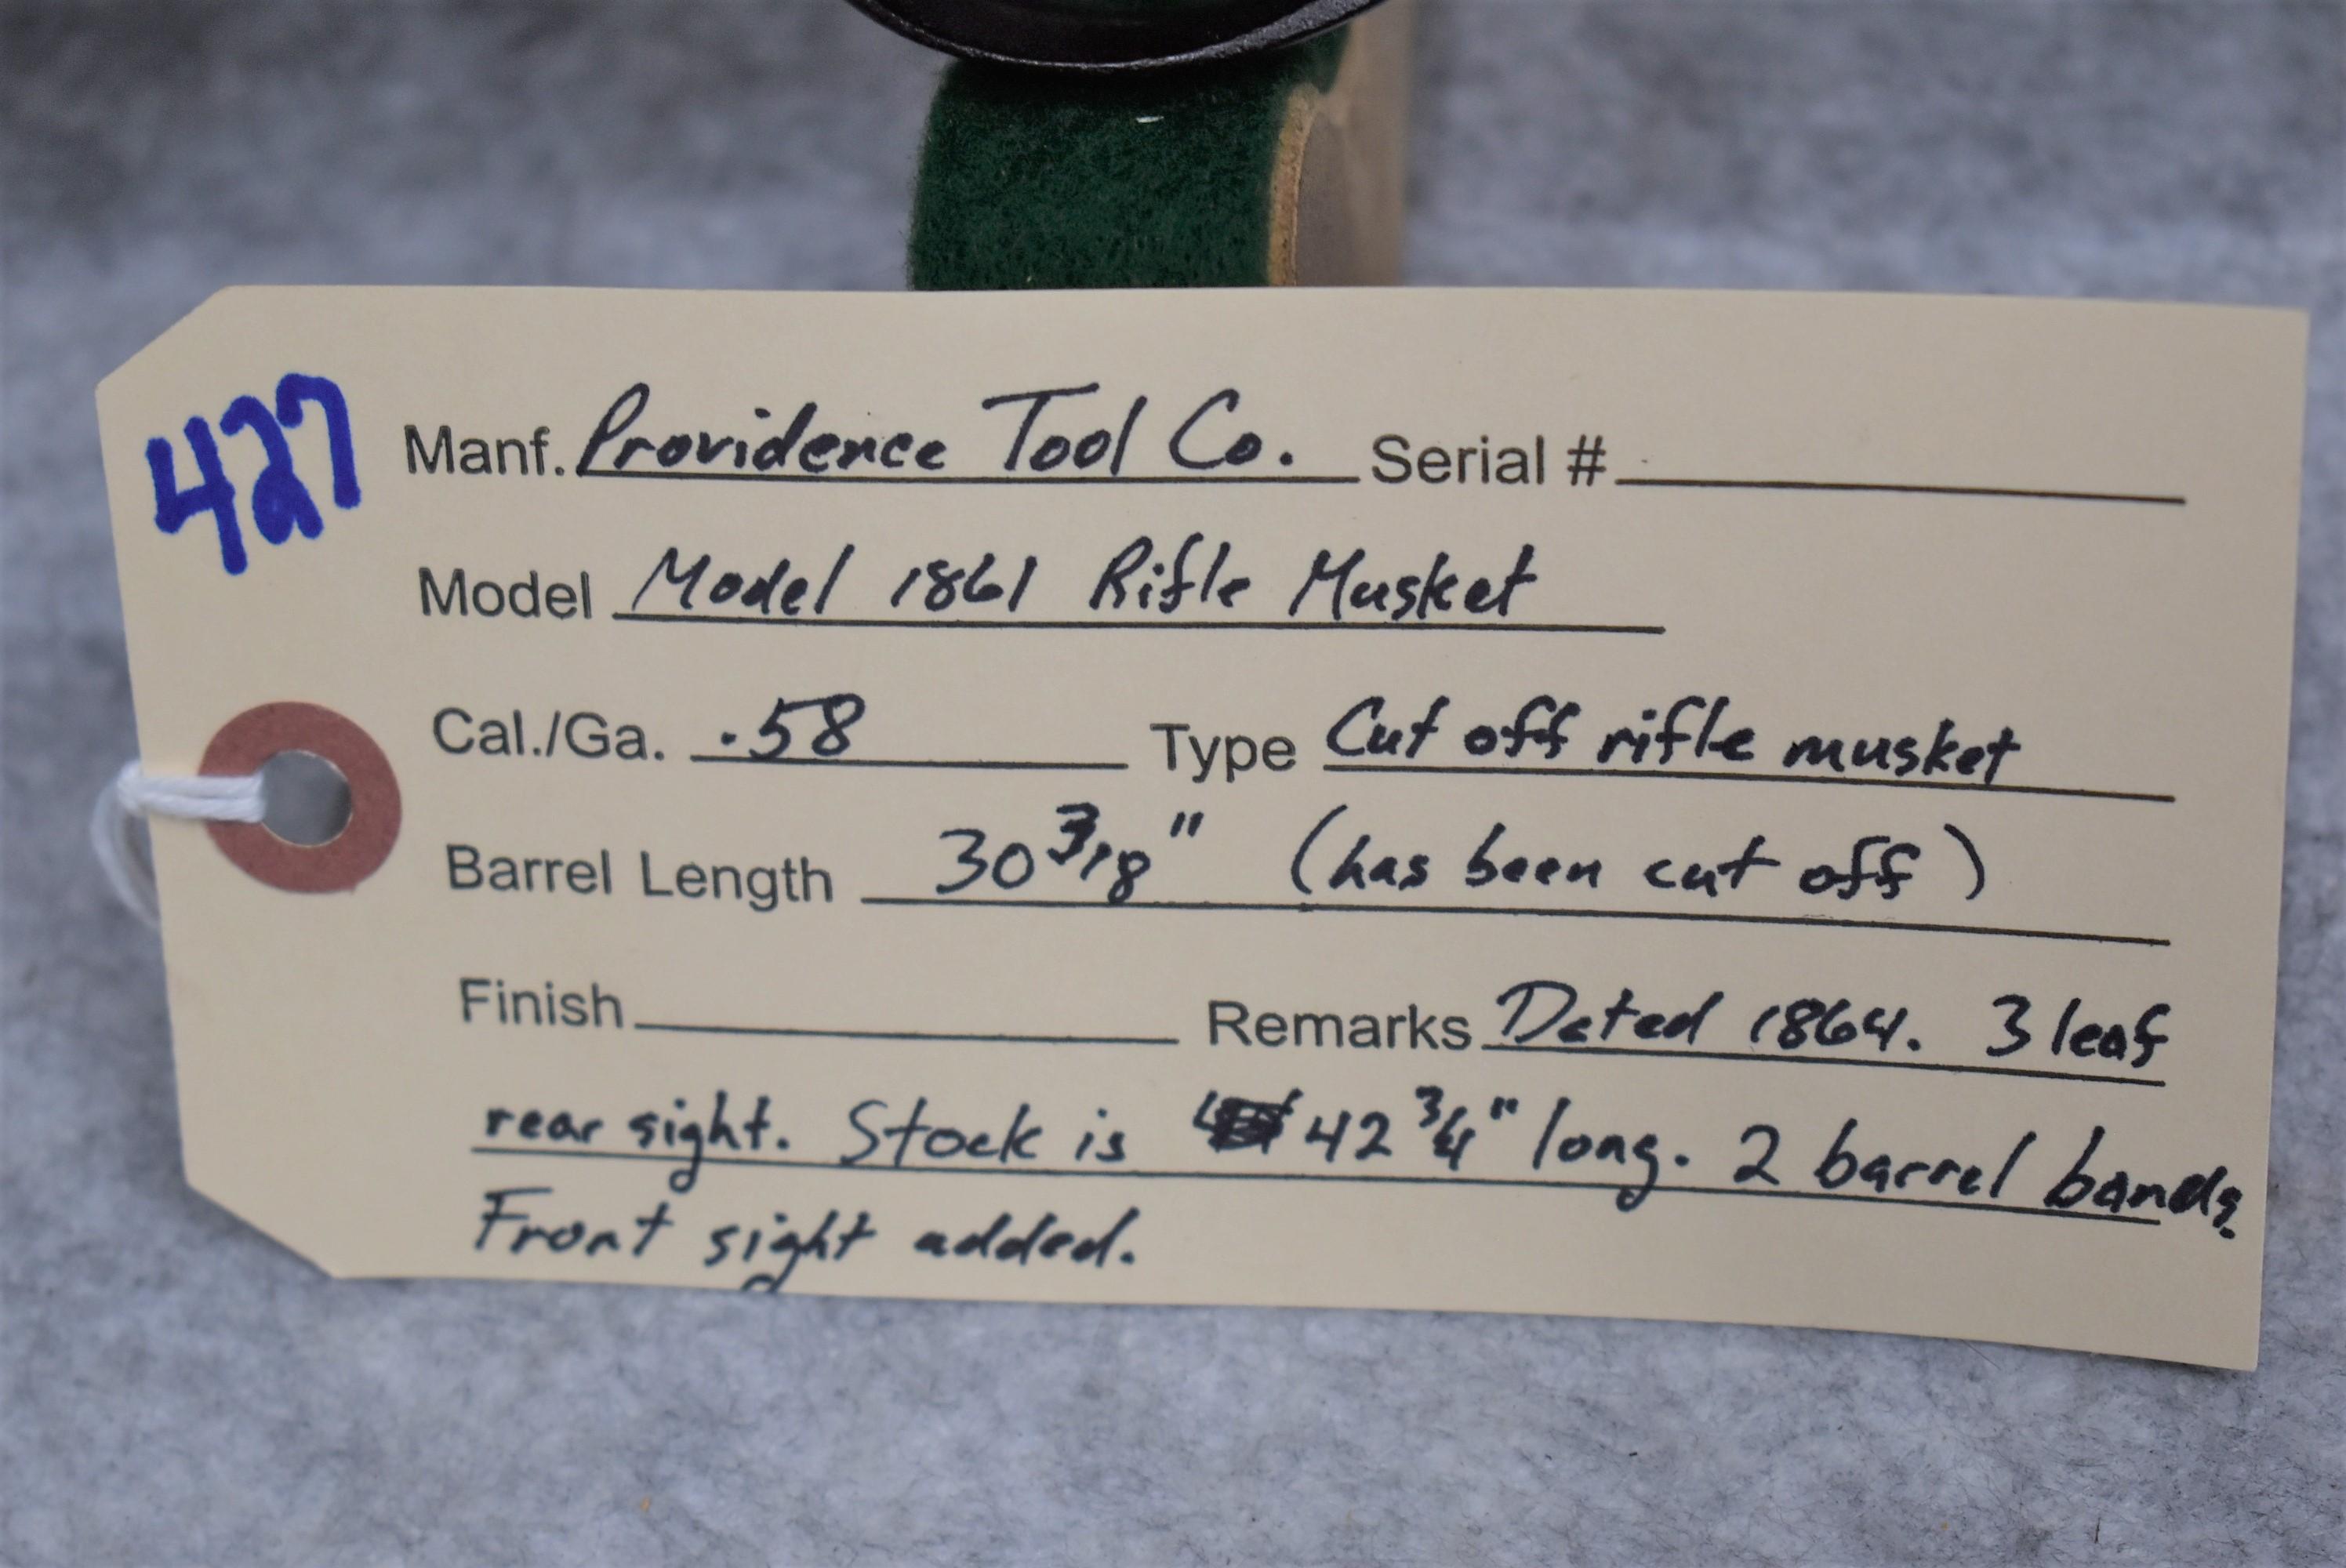 427
Manf. Providence Tool Co. Serial #
Model Model 1861 Rifle Musket
Cal./Ga. .58 Type Cut off rifle musket
Barrel Length 30 3/8" (has been cut off)
Finish Remarks Dated 1864. 3 leaf
rear sight. Stock is 42 3/4" long. 2 barrel bands.
Front sight added.